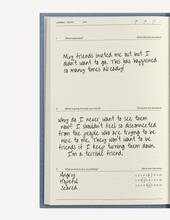 1 What happened?
My friends invited me out but I
didn't want to go. This has happened
so many times already!
2 What is going through your mind?
Why do I never want to see them
now? I shouldn't feel so disconnected
from the people who are trying to be
nice to me. They won't want to be
friends if I keep turning them down.
I'm a terrible friend.
3
Angry
Hopeful
Scared